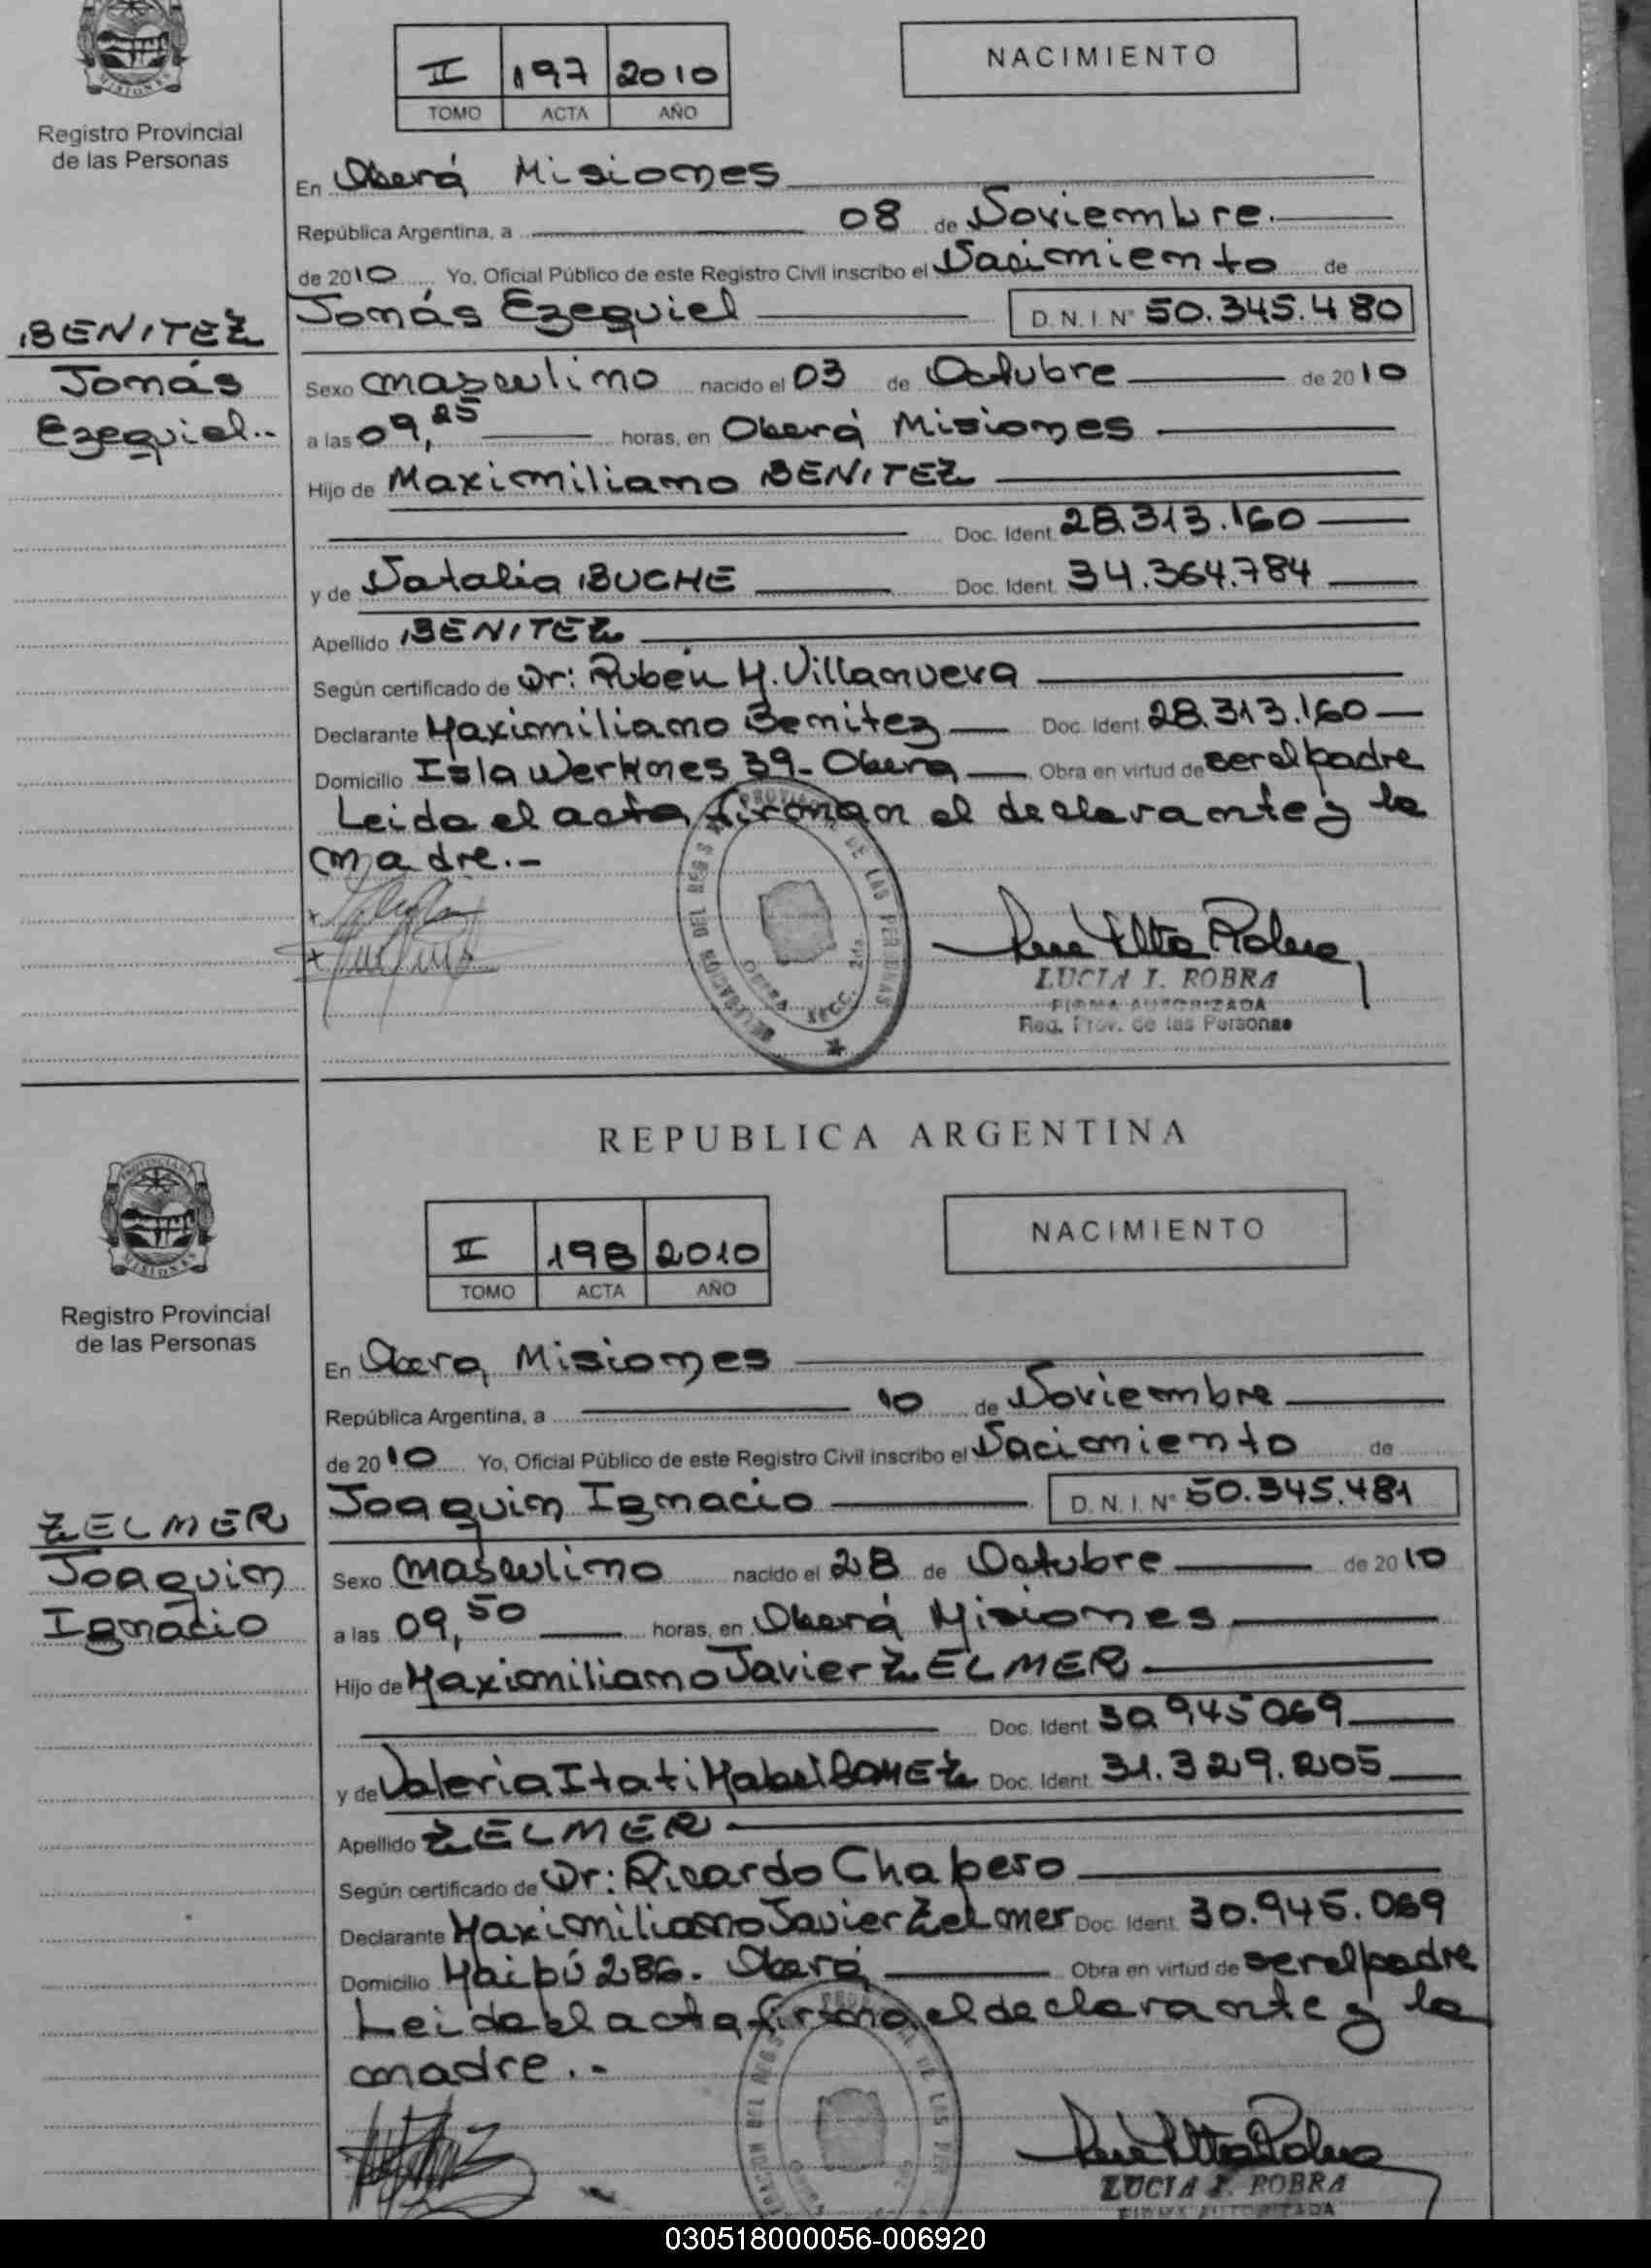 MISIONES
II 197 2010
TOMO ACTA AÑO
NACIMIENTO
Registro Provincial
de las Personas
En Oberá Misiones
República Argentina, a 08 de Noviembre.
de 2010 Yo, Oficial Público de este Registro Civil inscribo el Nacimiento de
Tomás Ezequiel D.N.I. Nº 50.345.480
BENITEZ
Tomás
Ezequiel.-
Sexo masculino nacido el 03 de Octubre de 2010
a las 09,25 horas, en Oberá Misiones
Hijo de Maximiliano BENITEZ
Doc. Ident. 28.313.160
y de Natalia BUCHE Doc. Ident. 34.364.784
Apellido BENITEZ
Según certificado de Dr: Rubén H. Villanueva
Declarante Maximiliano Benitez Doc. Ident. 28.313.160
Domicilio Isla 39- Oberá Obra en virtud de ser el padre
Leida el acta, firman el declarante y la
madre.-
PROVINCIAL DE LAS PERSONAS
DELEGACION DEL REGIS
OBERA SECC. 2da.
LUCIA I. ROBRA
FIRMA AUTORIZADA
Reg. Prov. de las Personas
REPUBLICA ARGENTINA
PROVINCIA DE
MISIONES
II 198 2010
TOMO ACTA AÑO
NACIMIENTO
Registro Provincial
de las Personas
En Oberá, Misiones
República Argentina, a 10 de Noviembre
de 2010 Yo, Oficial Público de este Registro Civil inscribo el Nacimiento de
Joaquin Ignacio D.N.I. Nº 50.345.481
ZELMER
Joaquin
Ignacio
Sexo masculino nacido el 28 de Octubre de 2010
a las 09,50 horas, en Oberá Misiones
Hijo de Maximiliano Javier ZELMER
Doc. Ident. 30.945.069
y de Valeria Itati Mabel GOMEZ Doc. Ident. 31.329.205
Apellido ZELMER
Según certificado de Dr: Ricardo Chapero
Declarante Maximiliano Javier Zelmer Doc. Ident. 30.945.069
Domicilio Maipú 286. Oberá Obra en virtud de ser el padre
Leida el acta, firma el declarante y la
madre.-
LUCIA I. ROBRA
FIRMA AUTORIZADA
030518000056-006920